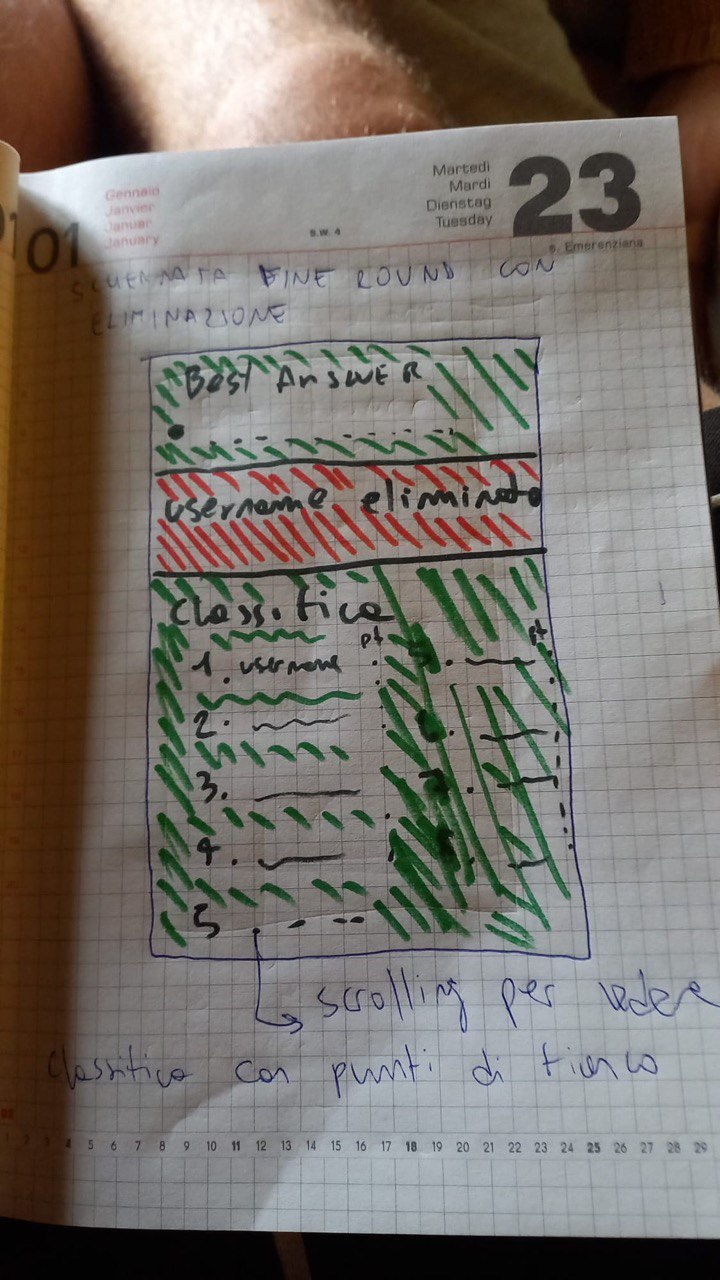 01
Gennaio
Janvier
Januar
January
S.W. 4
Martedì
Mardi
Dienstag
Tuesday
23
s. Emerenziana
SCHERMATA FINE ROUND CON
ELIMINAZIONE
Best AnswER
username eliminato
classifica
pt
pt
1. username
2.
3.
4.
5
scrolling per vedere
classifica con punti di fianco
1 2 3 4 5 6 7 8 9 10 11 12 13 14 15 16 17 18 19 20 21 22 23 24 25 26 27 28 29